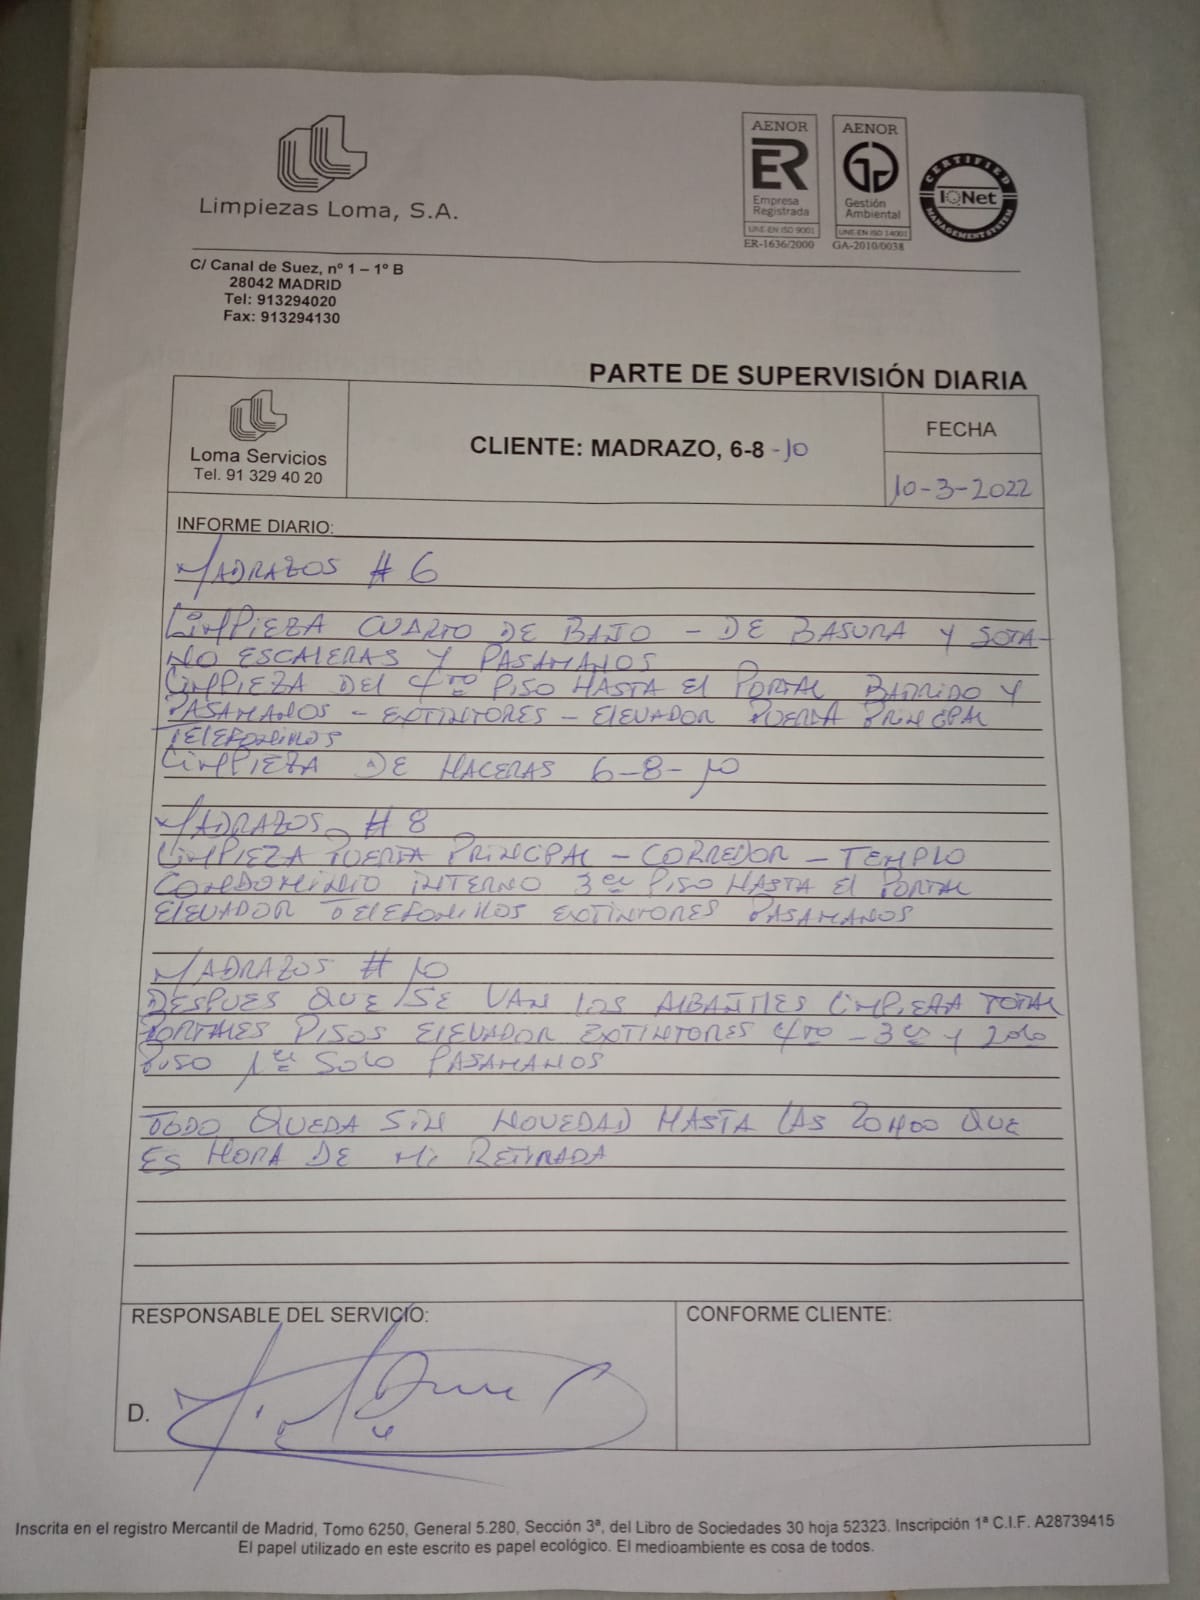 Limpiezas Loma, S.A.
AENOR
ER
Empresa
Registrada
UNE-EN ISO 9001
ER-1636/2000
AENOR
Gestión
Ambiental
UNE-EN ISO 14001
GA-2010/0038
CERTIFIED
IQNet
MANAGEMENT SYSTEM
C/ Canal de Suez, nº 1 – 1º B
28042 MADRID
Tel: 913294020
Fax: 913294130
PARTE DE SUPERVISIÓN DIARIA
Loma Servicios
Tel. 91 329 40 20
CLIENTE: MADRAZO, 6-8 -10
FECHA
10-3-2022
INFORME DIARIO:
MADRAZOS # 6
LIMPIEZA CUARTO DE BAÑO - DE BASURA Y SOTA-
NO ESCALERAS Y PASAMANOS
LIMPIEZA DEL 4TO PISO HASTA EL PORTAL BARRIDO Y
PASAMANOS - EXTINTORES - ELEVADOR PUERTA PRINCIPAL
TELEFONILLOS
LIMPIEZA DE HACERAS 6-8-10
MADRAZOS # 8
LIMPIEZA PUERTA PRINCIPAL - CORREDOR - TEMPLO
CONDOMINIO INTERNO 3ER PISO HASTA EL PORTAL
ELEVADOR TELEFONILLOS EXTINTORES PASAMANOS
MADRAZOS # 10
DESPUES QUE SE VAN LOS ALBAÑILES LIMPIEZA TOTAL
PORTALES PISOS ELEVADOR EXTINTORES 4TO - 3ER Y 2DO
PISO 1ER SOLO PASAMANOS
TODO QUEDA SIN NOVEDAD HASTA LAS 20H00 QUE
ES HORA DE MI RETIRADA
RESPONSABLE DEL SERVICIO:
CONFORME CLIENTE:
D.
Inscrita en el registro Mercantil de Madrid, Tomo 6250, General 5.280, Sección 3ª, del Libro de Sociedades 30 hoja 52323. Inscripción 1ª C.I.F. A28739415
El papel utilizado en este escrito es papel ecológico. El medioambiente es cosa de todos.